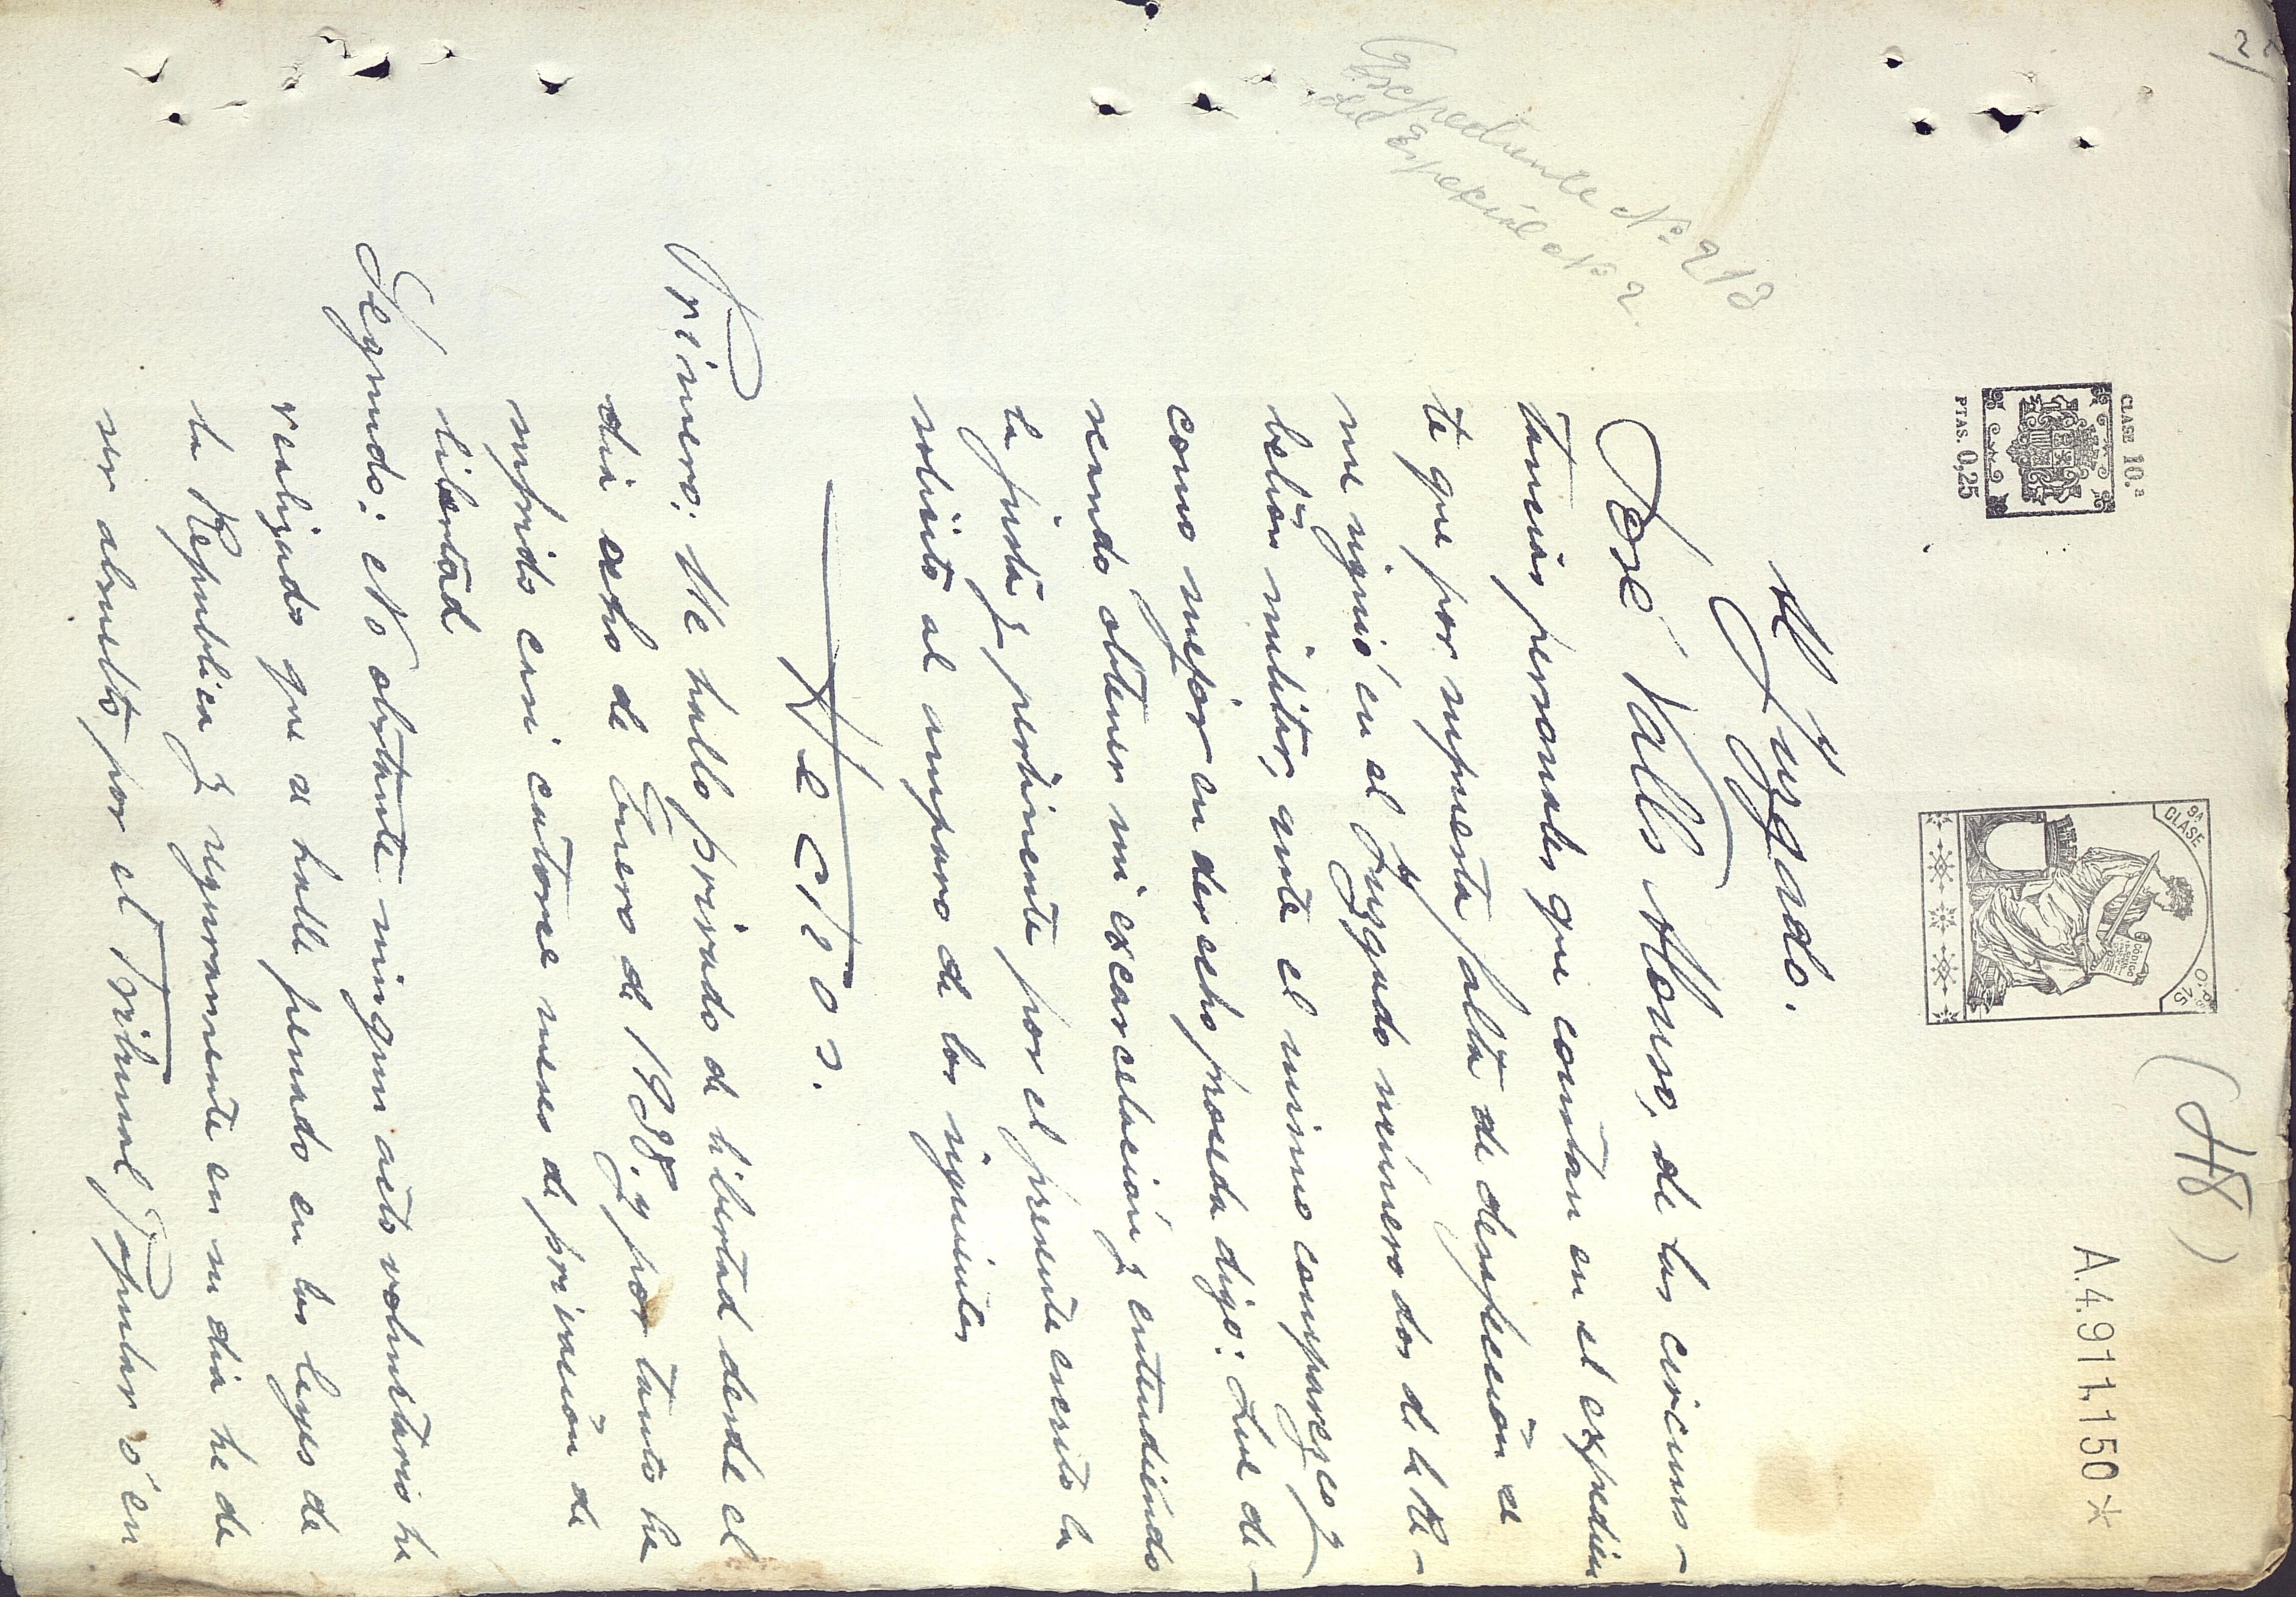 22
CLASE 10.ª
PTAS. 0,25
9ª CLASE
0'15
(48)
A.4.911.150 *
Expediente Nº 213
del Especial Nº 2.
Al Juzgado.
José Valls Alonso, de las circuns-
tancias personales que constan en el expedien
te que por supuesta falta de desafección se
me siguió en el Juzgado número dos de la Re-
belión militar, ante el mismo comparezco y
como mejor en derecho proceda digo: Que de-
seando obtener mi excarcelación y entendiendo
la justa y pertinente por el presente escrito la
solicito al amparo de los siguientes
Hechos.
Primero: Me hallo privado de libertad desde el
dia ocho de Enero de 1938; y por tanto he
sufrido casi catorse meses de privación de
libertad
Segundo: No obstante ningun acto voluntario he
realizado que se halle penado en las leyes de
la Republica y seguramente en su dia he de
ser absuelto por el Tribunal Popular ó en